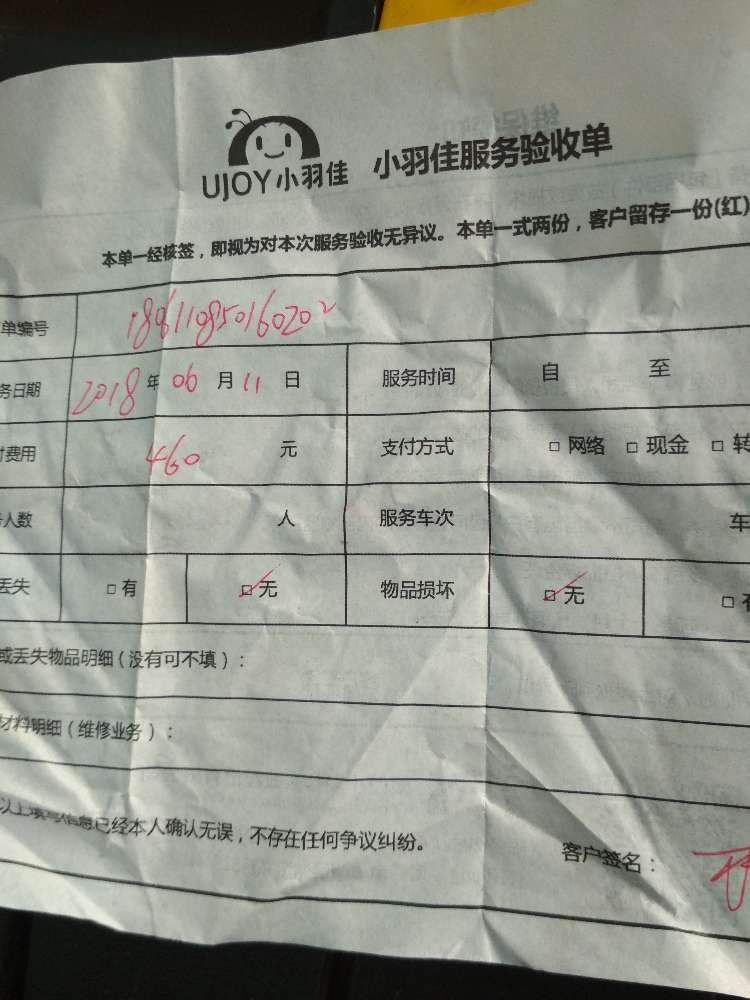 UJOY小羽佳 小羽佳服务验收单
本单一经核签，即视为对本次服务验收无异议。本单一式两份，客户留存一份(红)
单编号 1806110850160202
务日期 2018年06月11日 服务时间 自 至
付费用 460元 支付方式 □网络 □现金 □转
人数 人 服务车次 车
丢失 □有 ☑无 物品损坏 ☑无 □有
或丢失物品明细（没有可不填）：
材料明细（维修业务）：
以上填写信息已经本人确认无误，不存在任何争议纠纷。
客户签名：